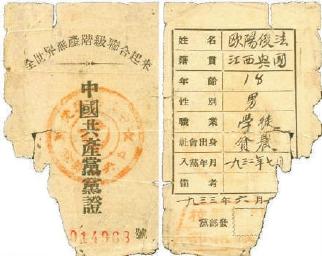 全世界無產階級聯合起來
中國共產黨黨證
014983 號
姓名 歐陽俊法
籍貫 江西興國
年齡 18
性別 男
職業 學徒
社會出身 貧農
入黨年月 一九三二年七月
備考
一九三三年六月
黨部發